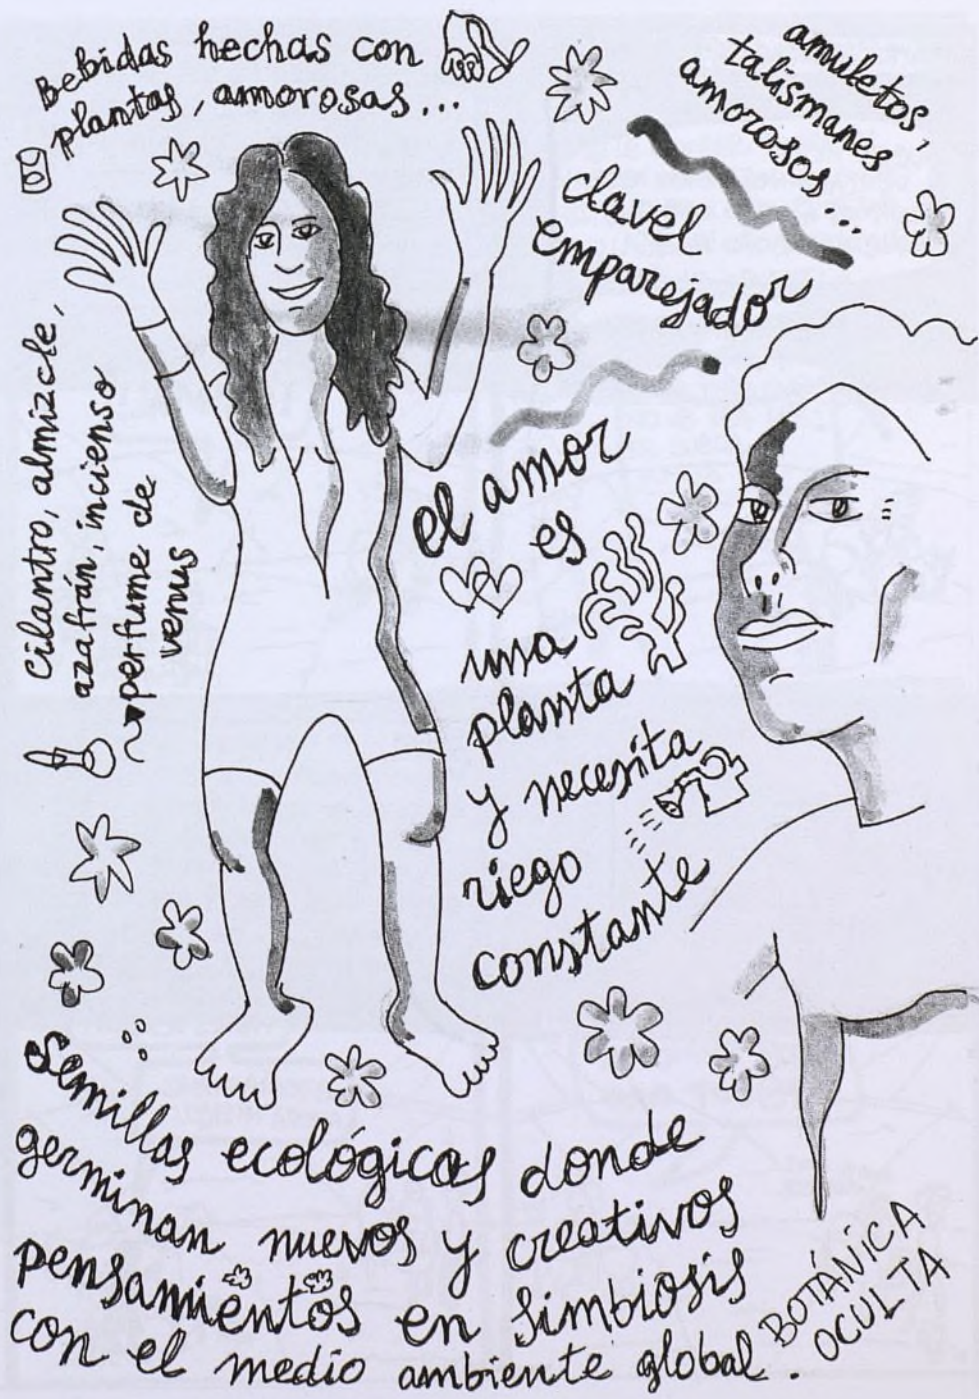 Bebidas hechas con
plantas, amorosas...
amuletos,
talismanes
amorosos...
clavel
emparejador
Cilantro, almizcle,
azafrán, incienso
perfume de
venus
el amor
es
una
planta
y necesita
riego
constante
Semillas ecológicas donde
germinan nuevos y creativos
pensamientos en simbiosis
con el medio ambiente global.
BOTÁNiCA
OCULTA